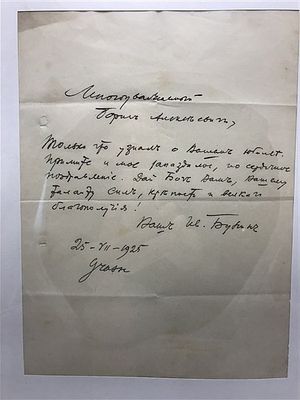 Многоуважаемый
Борис Алексѣевичъ,
Только что узналъ о Вашемъ юбилеѣ.
Примите и мое запоздалое, но сердечное
поздравленiе. Дай Богъ Вамъ, Вашему
таланту силъ, крѣпости и всякаго
благополучiя!
Вашъ Ив. Бунинъ
25-VII-1925